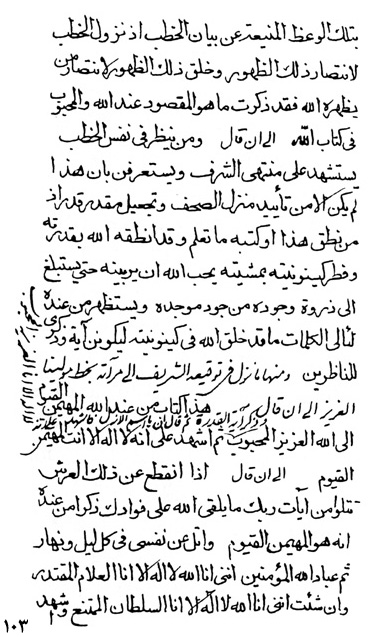 بتلك الوعظ المنيعة عن بيان الخطب اذ نزول الخطب
لانتصار ذلك الظهور وخلق ذلك الظهور لانتصار من
يظهره الله فقد ذكرت ما هو المقصود عند الله والمحبوب
فى كتاب الله الى ان قال ومن ينظر فى نفس الخطب
يستشهد على منتهى الشرف ويستعرفن بان هذا
لم يكن الا من تأييد منزل الصحف وتجعيل مقدر قدر اذ
من نطق هذا او كتبه ما تعلم وقد انطقه الله بقدرته
وفطر كينونيته بمشيته يحب الله ان يربينه حتى يستبلغ
الى ذروة وجوده من جود موجده ويستظهر من عنده
لئالى الكلمات ما قد خلق الله فى كينونيته ليكونن آية وذكرى
للناظرين ومنها ما نزل فى توقيعه الشريف الى مرآته بخط
العزيز الى ان قال هذا كتاب من عند الله المهيمن القيوم
الى الله العزيز المحبوب ثم اشهد على انه لا اله الا انت المهيمن
القيوم الى ان قال اذا انقطع عن ذلك العرش
تتلوا من آيات ربك ما يلقى الله على فوادك ذكرا من عنده
انه هو المهيمن القيوم واتل عن نفسى فى كل ليل ونهار
ثم عباد الله المؤمنين اننى انا الله لا اله الا انا العلام المقتدر
وان شئت اننى انا الله لا اله الا انا السلطان الممتنع واشهد
١٠٣